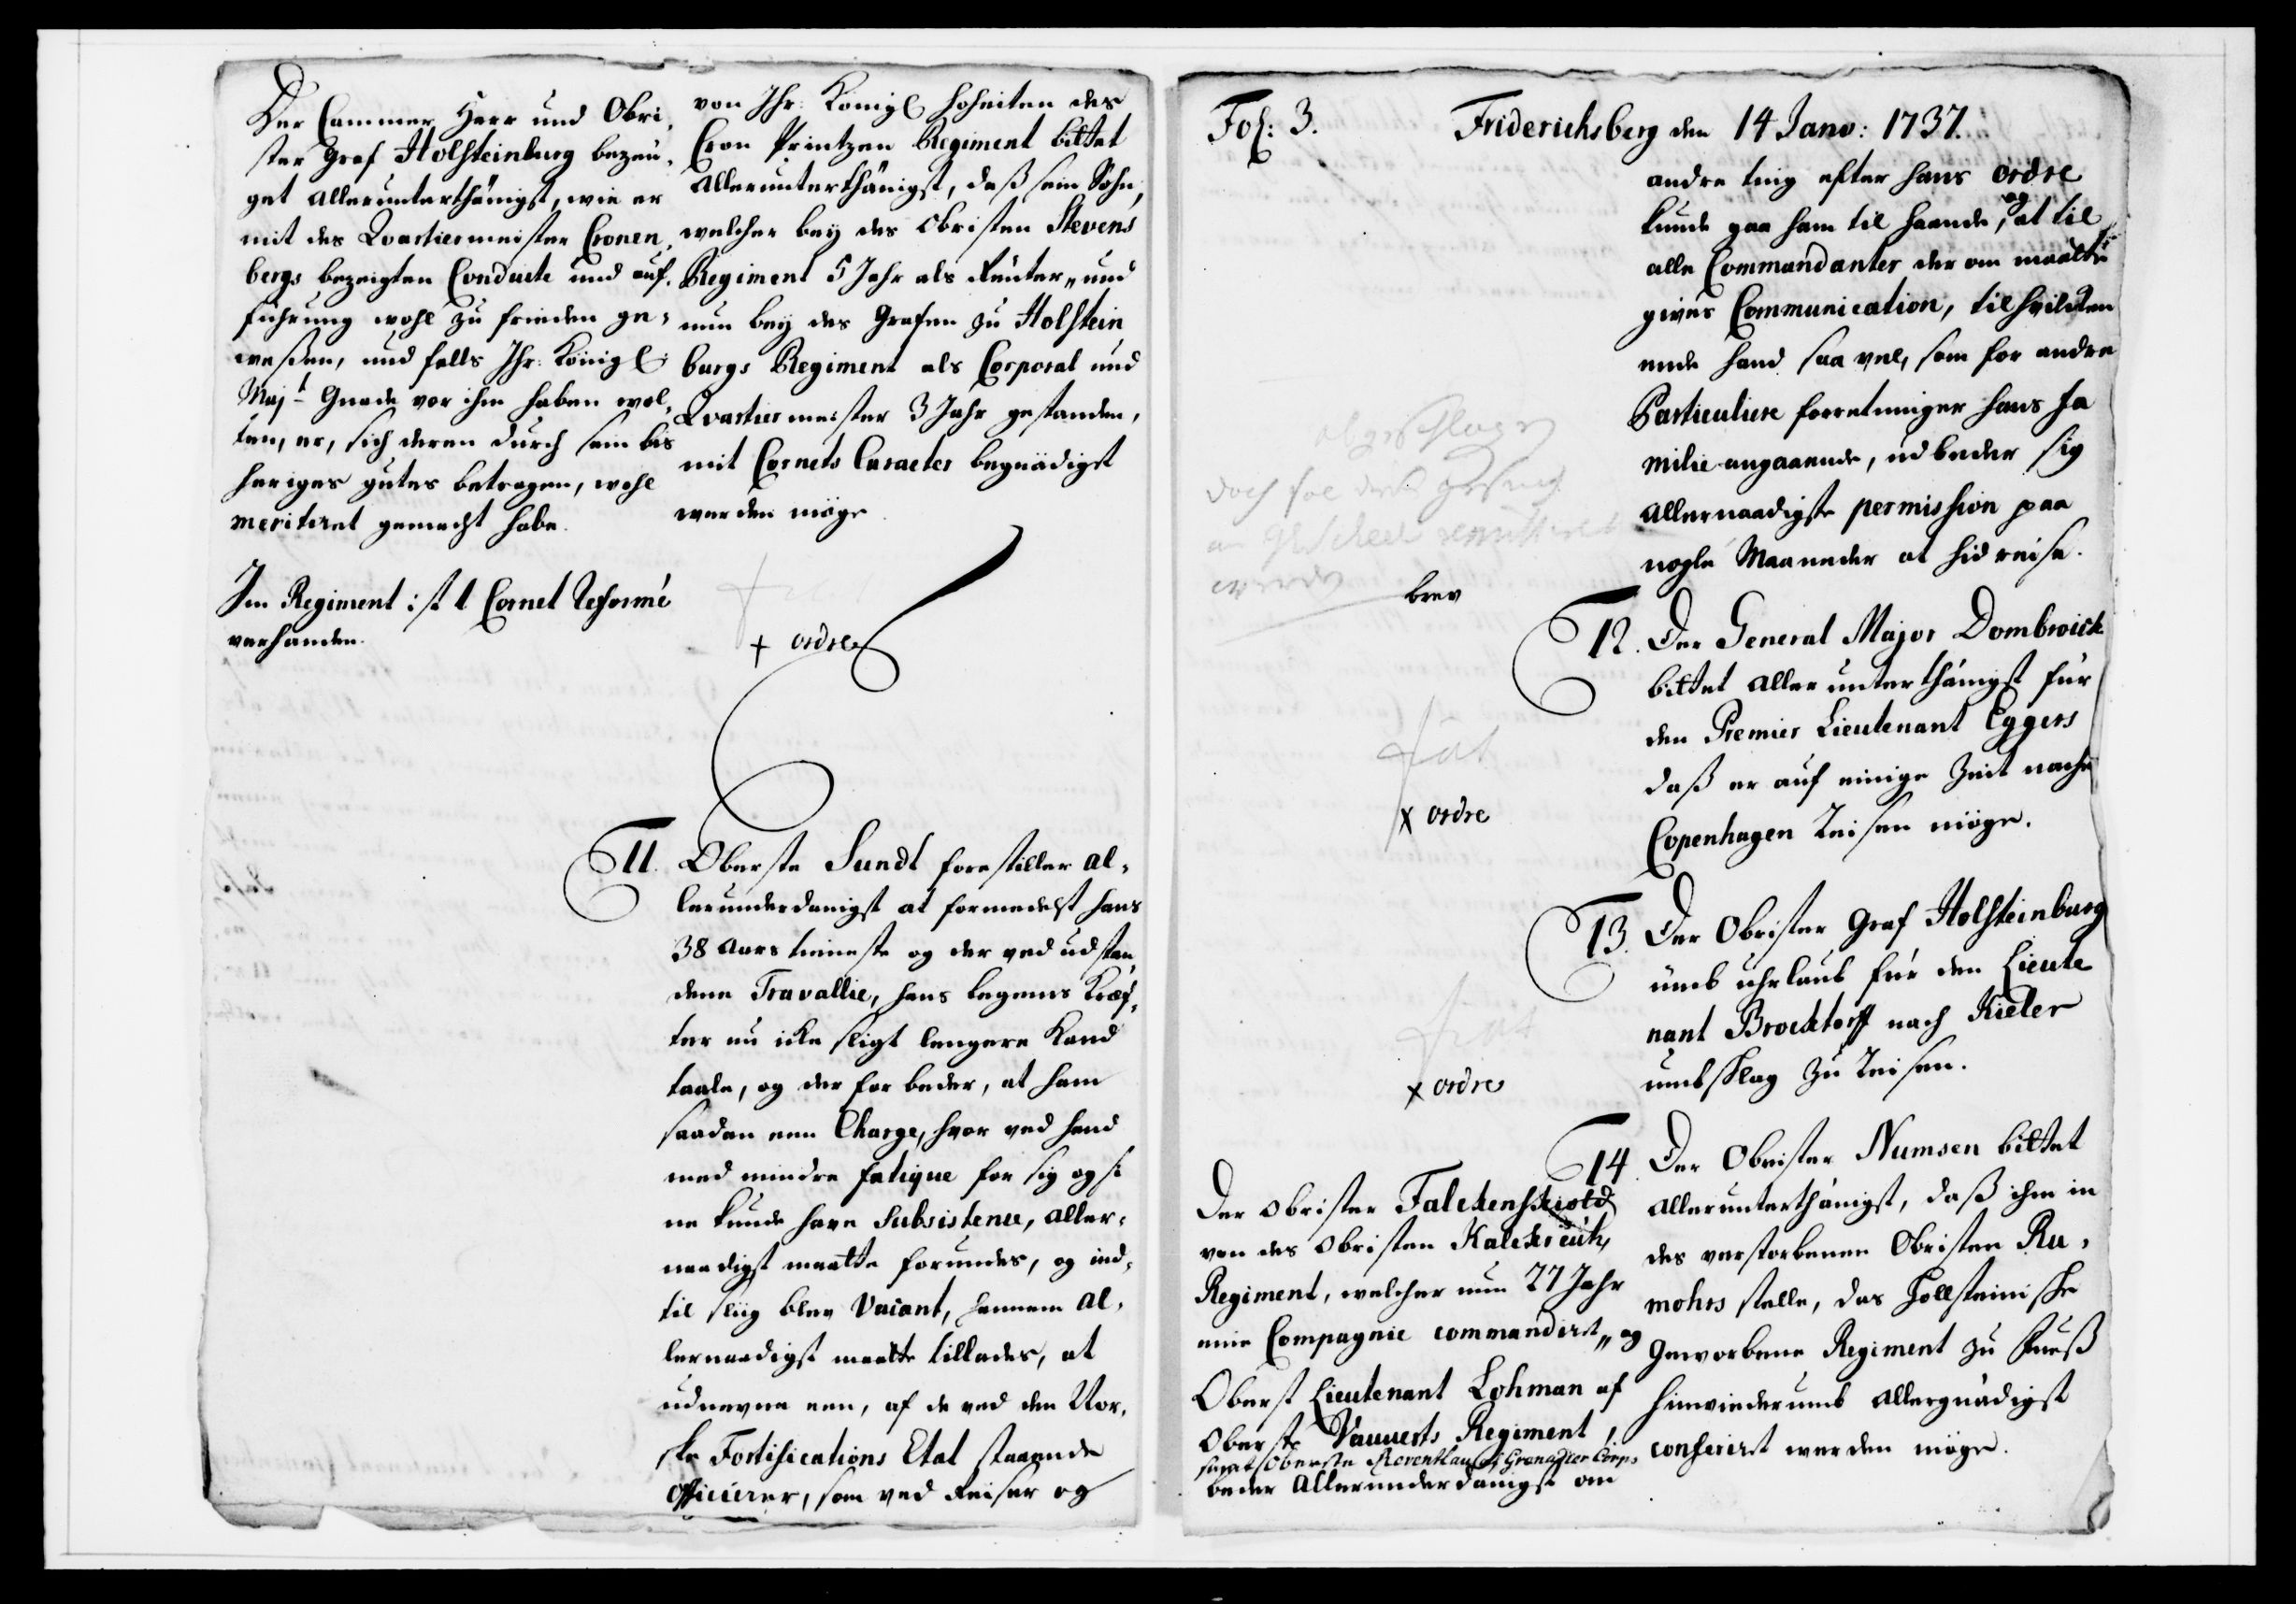 Der Cammer Herr und Obri,
ster Graf Holsteinburg bezeu,
get allerunterthänigst, wie er
mit des Qvartiermeister Cronen,
bergs bezeigten Conduite und auf,
führung wohl zu frieden ge,
weßen, und falls Ihr: Königl:
Majt Gnade vor ihm haben wol,
ten, er, sich deren durch sein bis
heriges gutes betragen, wohl
meritiret gemacht habe.
Im Regiment ist 1 Cornet Reformé
verhanden.
von Ihr: Königl Hoheiten des
Cron Printzen Regiment bittet
allerunterthänigst, daß sein Sohn,
welcher bey des Obristen Stevens
Regiment 5 Jahr als Reuter, und
nun bey des Grafen zu Holstein
burgs Regiment als Corporal und
Qvartiermeister 3 Jahr gestanden,
mit Cornets Caracter begnädigst
werden möge
fiat
+ ordre
11. Oberste Sundt forestiller al,
lerunderdanigst at formedelst hans
38 Aars tieneste og der ved udstan
dene Travallie, hans legems Kræf,
ter nu icke sligt lengere Kand
taale, og der for beder, at ham
saadan een Charge, hvor ved hand
med mindre fatique for sig og si
ne kunde have Subsistence, aller,
naadigst maatte forundes, og ind,
til sliig blev Vacant, hannem al,
lernaadigst maatte tillades, at
udnevne een, af de ved den Nor,
ske Fortifications Etat staaende
Officierer, som ved Reiser og
Fol: 3.
Friderichsberg den 14 Janv: 1737.
andre ting efter hans ordre
kunde gaa ham til haande, og at til
alle Commandanter der om maatte
gives Communication, til hvilcken
ende hand saa vel, som for andre
Particuliere forretninger hans fa
milie angaaende, udbeder sig
allernaadigste permission paa
nogle Maaneder at hid reise.
abgeschlagen
doch sol dies gesuch
an remittiret
werden
brev
12. Der General Major Dombroick
bittet allerunterthänigst für
den Premier Lieutenant Eggers
daß er auf einige Zeit nach
Copenhagen Reisen möge.
fiat
x ordre
13. Der Obrister Graf Holsteinburg
umb uhrlaub für den Lieute
nant Brocktorff nach Kieler
umbschlag zu Reisen.
fiat
x ordre
14 Der Obrister Numsen bittet
allerunterthänigst, daß ihm in
des verstorbenen Obristen Ru,
mohrs stelle, das Hollsteinische
Geworbene Regiment zu Fueß
hinwiederumb allergnädigst
conferirst werden möge.
Der Obrister Falckenskiold
von des Obristen Kalckreuth,
Regiment, welcher nun 27 Jahr
eine Compagnie commandirt, og
Oberst Lieutenant Lohman af
Oberste Vauverts Regiment,
samt Oberste Reventlau af Grenadier Corps
beder Allerunderdanigst om